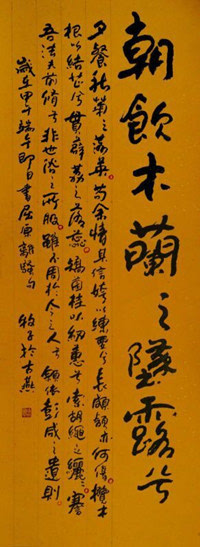 朝飲木蘭之墜露兮
夕餐秋菊之落英苟余情其信姱以練要兮長顑頷亦何傷擥木
根以結茝兮貫薜荔之落蕊矯菌桂以紉蕙兮索胡繩之纚纚謇
吾法夫前脩兮非世俗之所服雖不周於今之人兮願依彭咸之遺則
歲在甲午端午即日書屈原離騷句 牧子於古燕